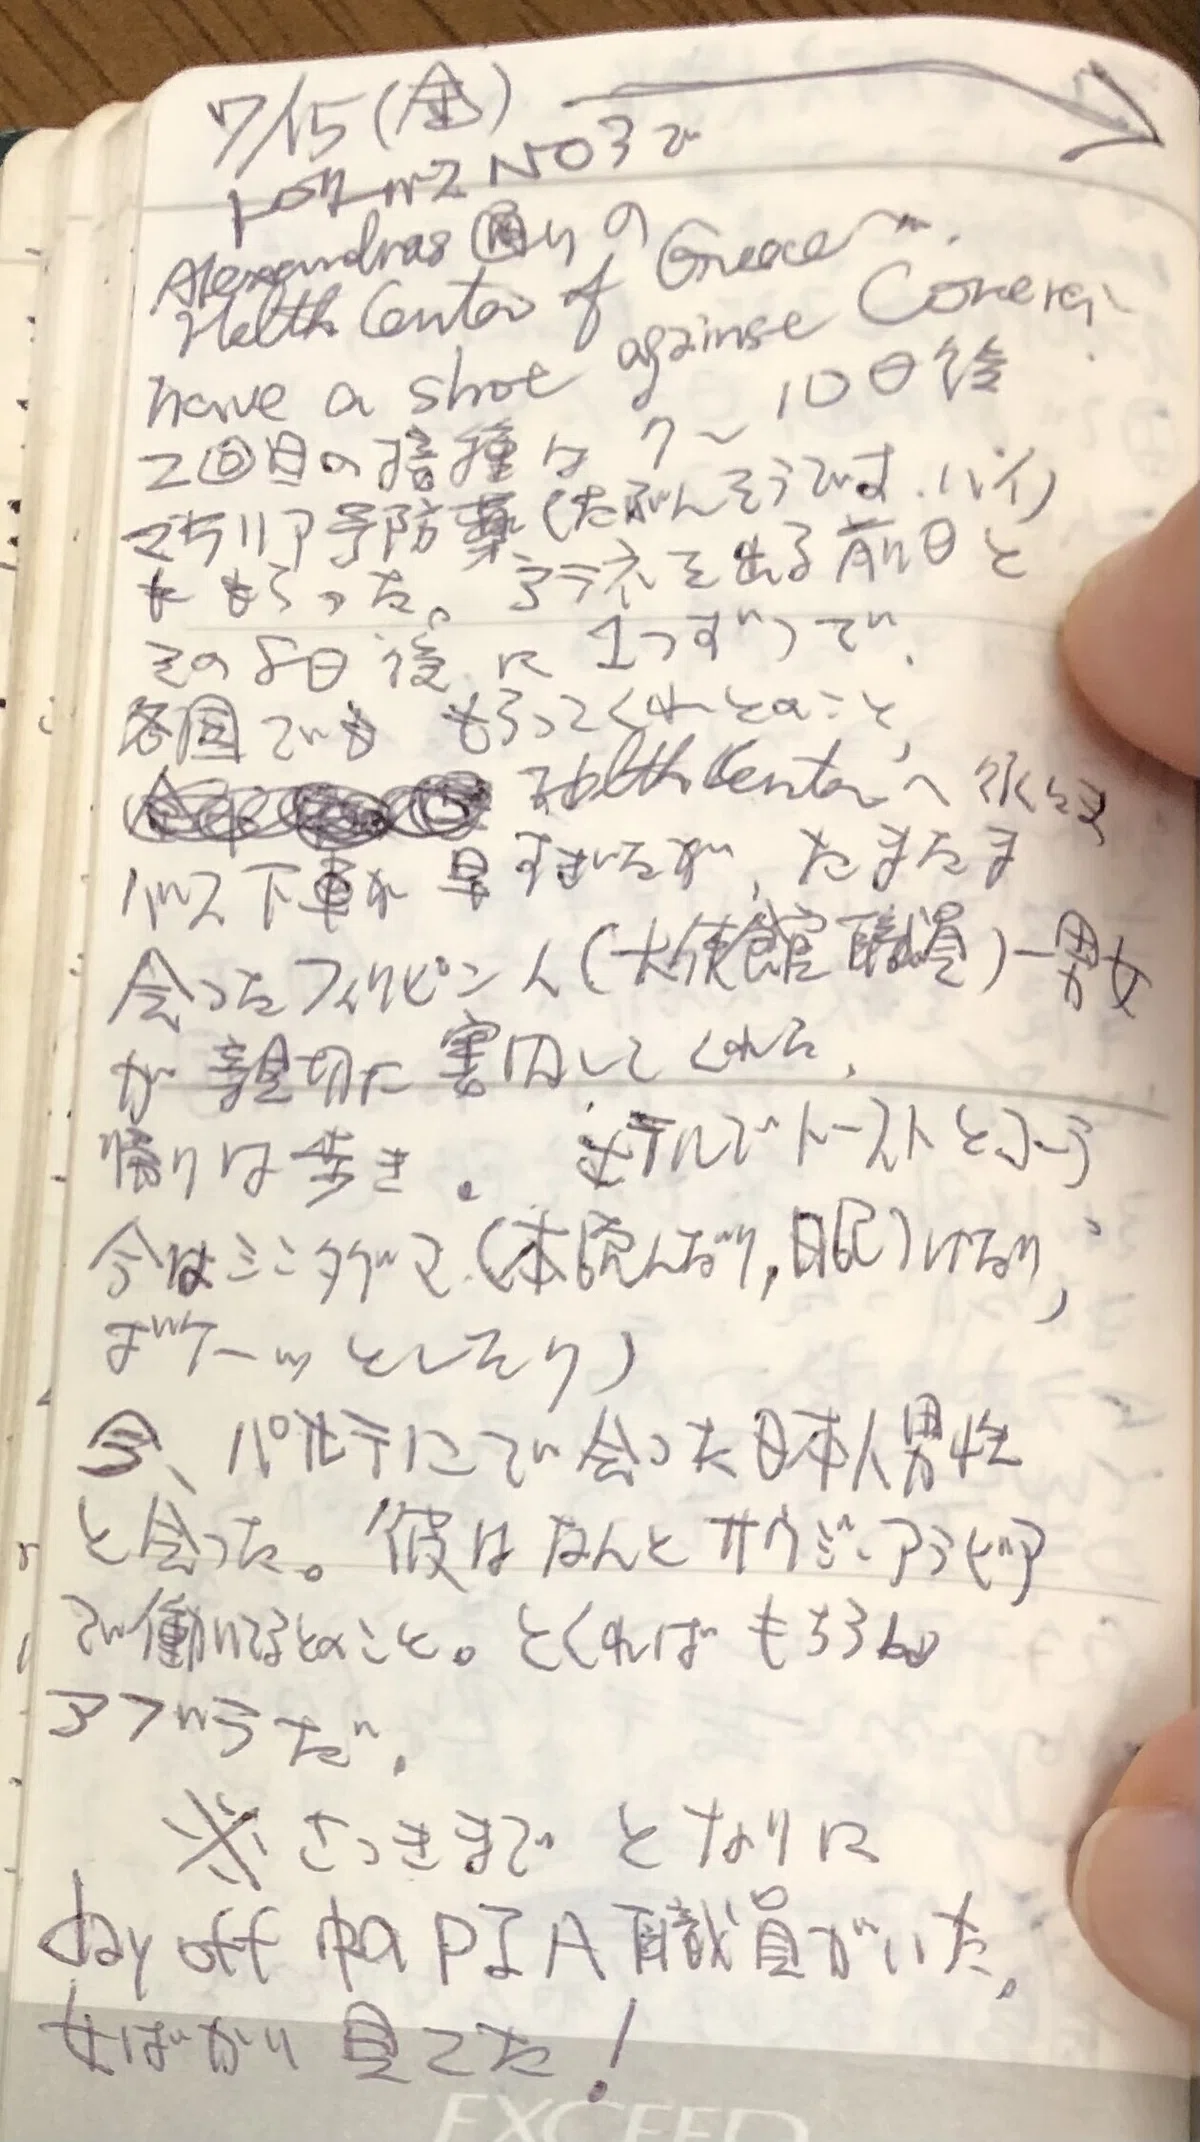 7/15(金)
トロリーバス NO3で
Alexandras 通りの
Helth Center of Greece
have a shot against
2回目の接種は 7〜10日後
マラリア予防薬(たぶんそうです.
ももらった。アテネを出る前日と
その8日後に1つずつで、
各国でももらってくれとのこと、
Helth Centerへ行くとき
バス下車が早すぎたが、たまたま
会ったフィリピン人(大使館職員)一男女
が親切に案内してくれた、
帰りは歩き。 ホテルでトーストとコーラ
今はシンタグマ(本読んだり,眠りけたり,
ボケーッとしたり)
今、パルテノンで会った日本人男性
と会った。彼はなんとサウジ・アラビア
で働いてるとのこと。とくればもちろん
アブラだ.
※さっきまで となりに
day off 中の PIA 職員がいた。
女ばかり見てた!
EXCEED